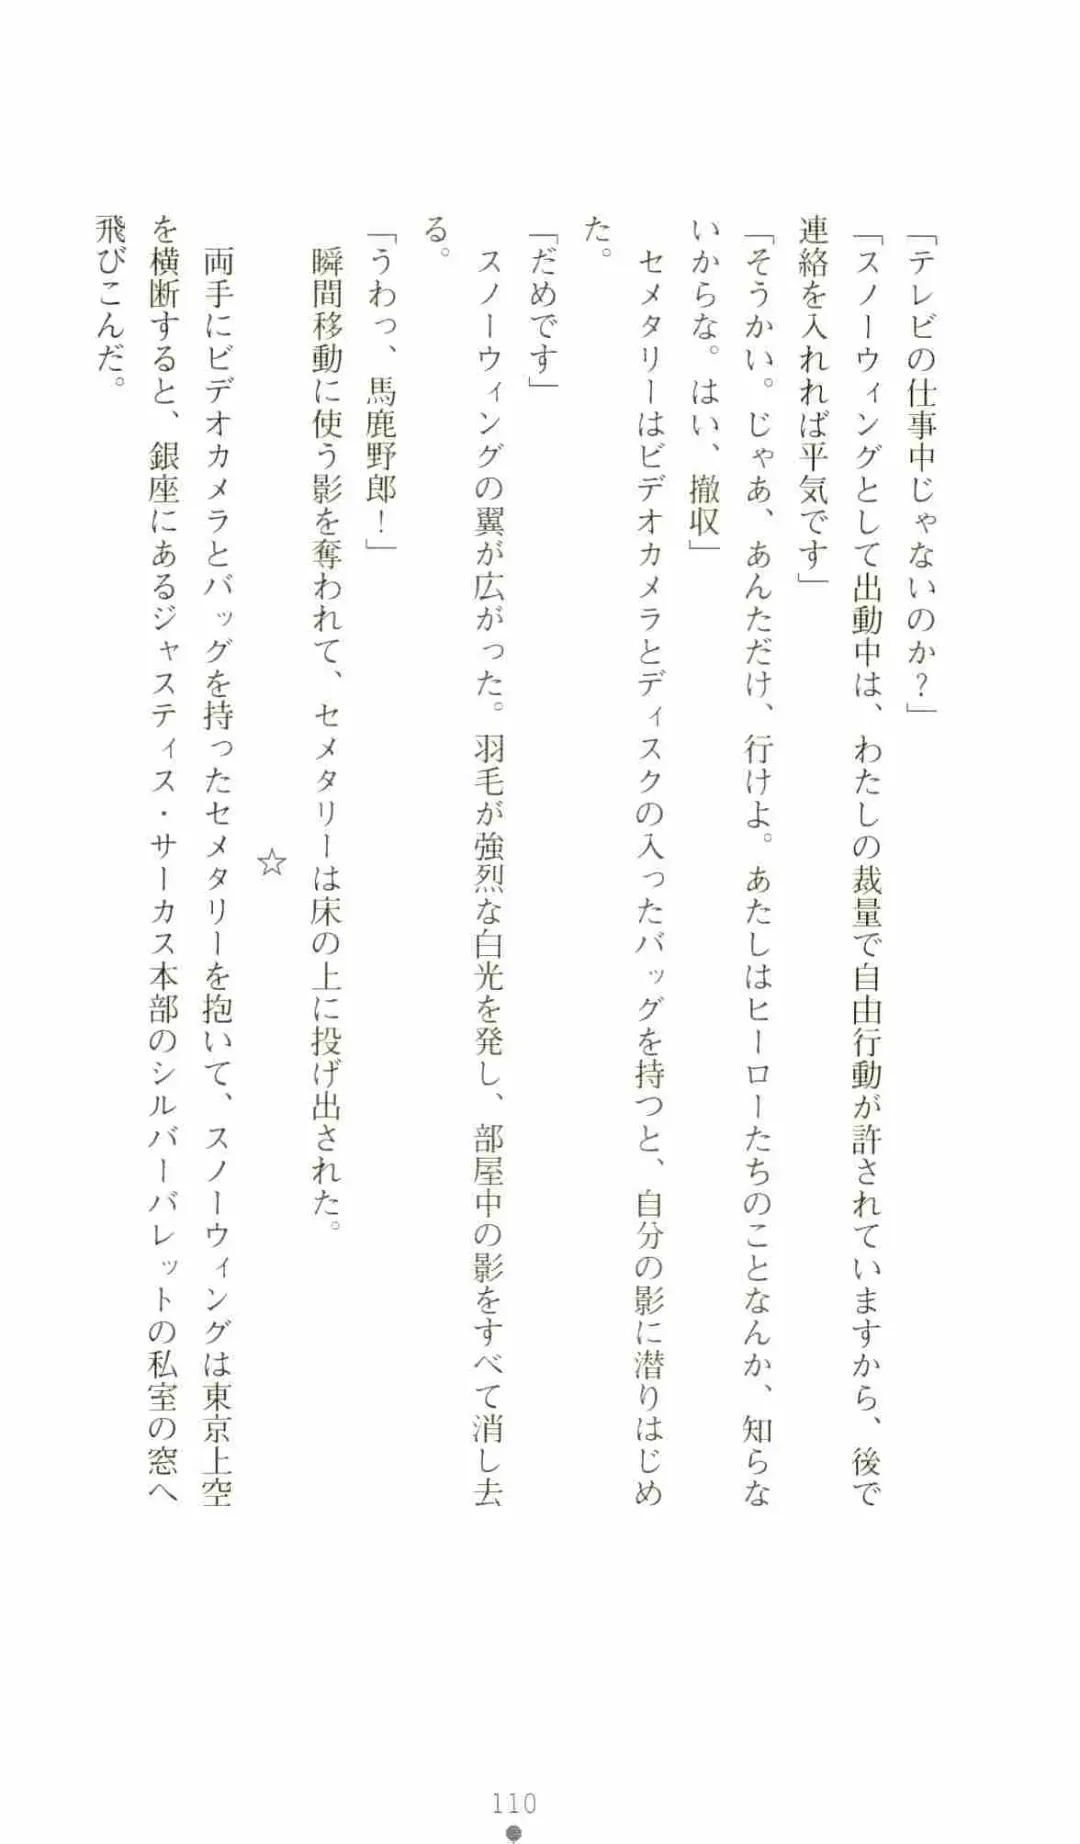 「テレビの仕事中じゃないのか？」
「スノーウィングとして出動中は、わたしの裁量で自由行動が許されていますから、後で
連絡を入れれば平気です」
「そうかい。じゃあ、あんただけ、行けよ。あたしはヒーローたちのことなんか、知らな
いからな。はい、撤収」
　セメタリーはビデオカメラとディスクの入ったバッグを持つと、自分の影に潜りはじめ
た。
「だめです」
　スノーウィングの翼が広がった。羽毛が強烈な白光を発し、部屋中の影をすべて消し去
る。
「うわっ、馬鹿野郎！」
　瞬間移動に使う影を奪われて、セメタリーは床の上に投げ出された。
☆
　両手にビデオカメラとバッグを持ったセメタリーを抱いて、スノーウィングは東京上空
を横断すると、銀座にあるジャスティス・サーカス本部のシルバーバレットの私室の窓へ
飛びこんだ。
110